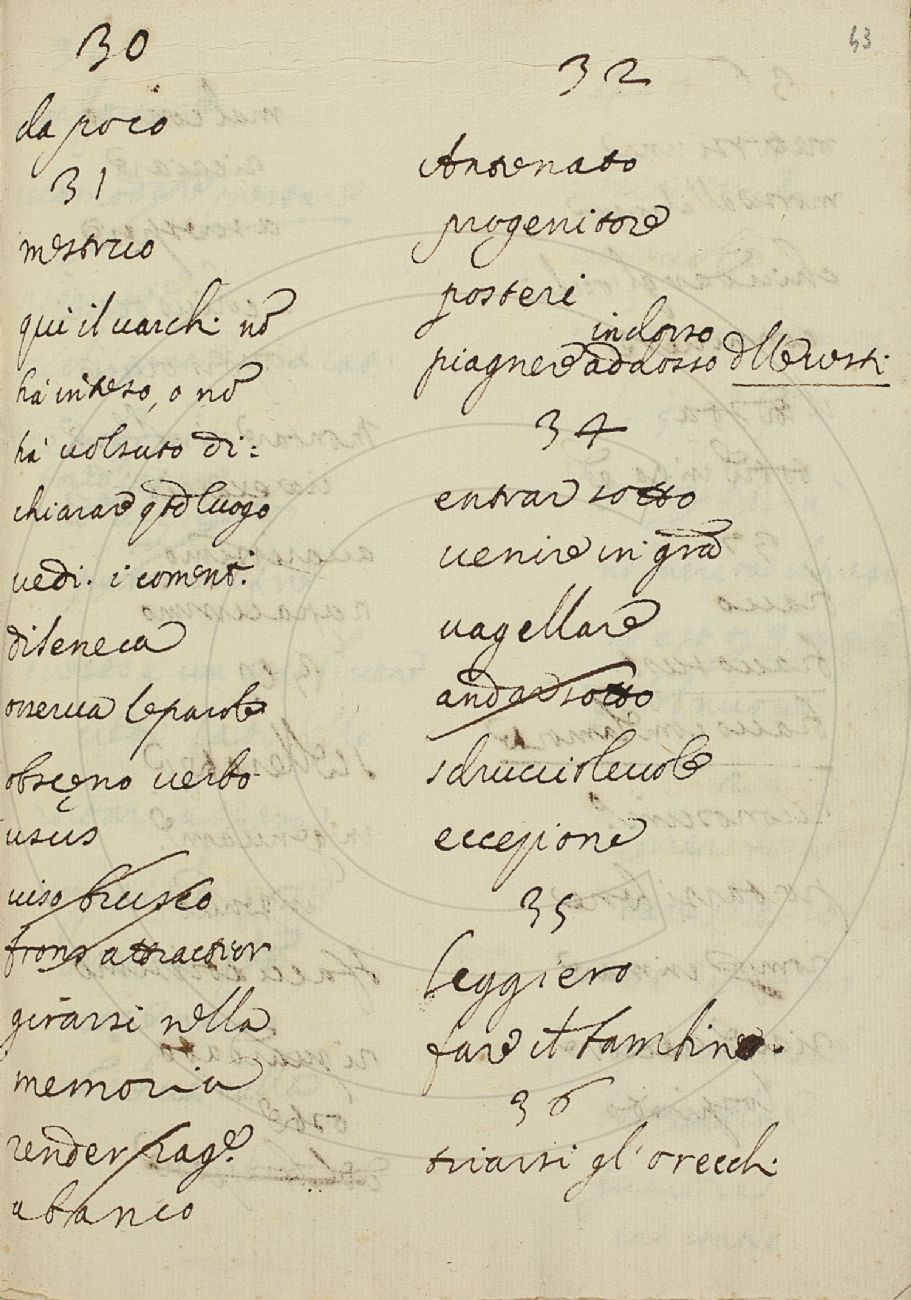 43
30
da poco
31
mestruo
qui il uarchi nō
ha inteso, o nō
ha uolsuto di:
chiarare qsto luogo
uedi. i coment.ⁱ
di seneca
osserua le parole
obsceno uerbo
usus
uiso brusco
frons attractior
girarsi nella
memoria
render rag.ᵉ
a banco
32
Antenato
progenitore
posteri
in dosso
piagnere addosso dlle uesti
34
entrar sotto
uenire in grā
uagellare
andar sotto
sdruccioleuole
eccezione
35
leggiero
fare il bambino.
36
sturarsi gl' orecchi